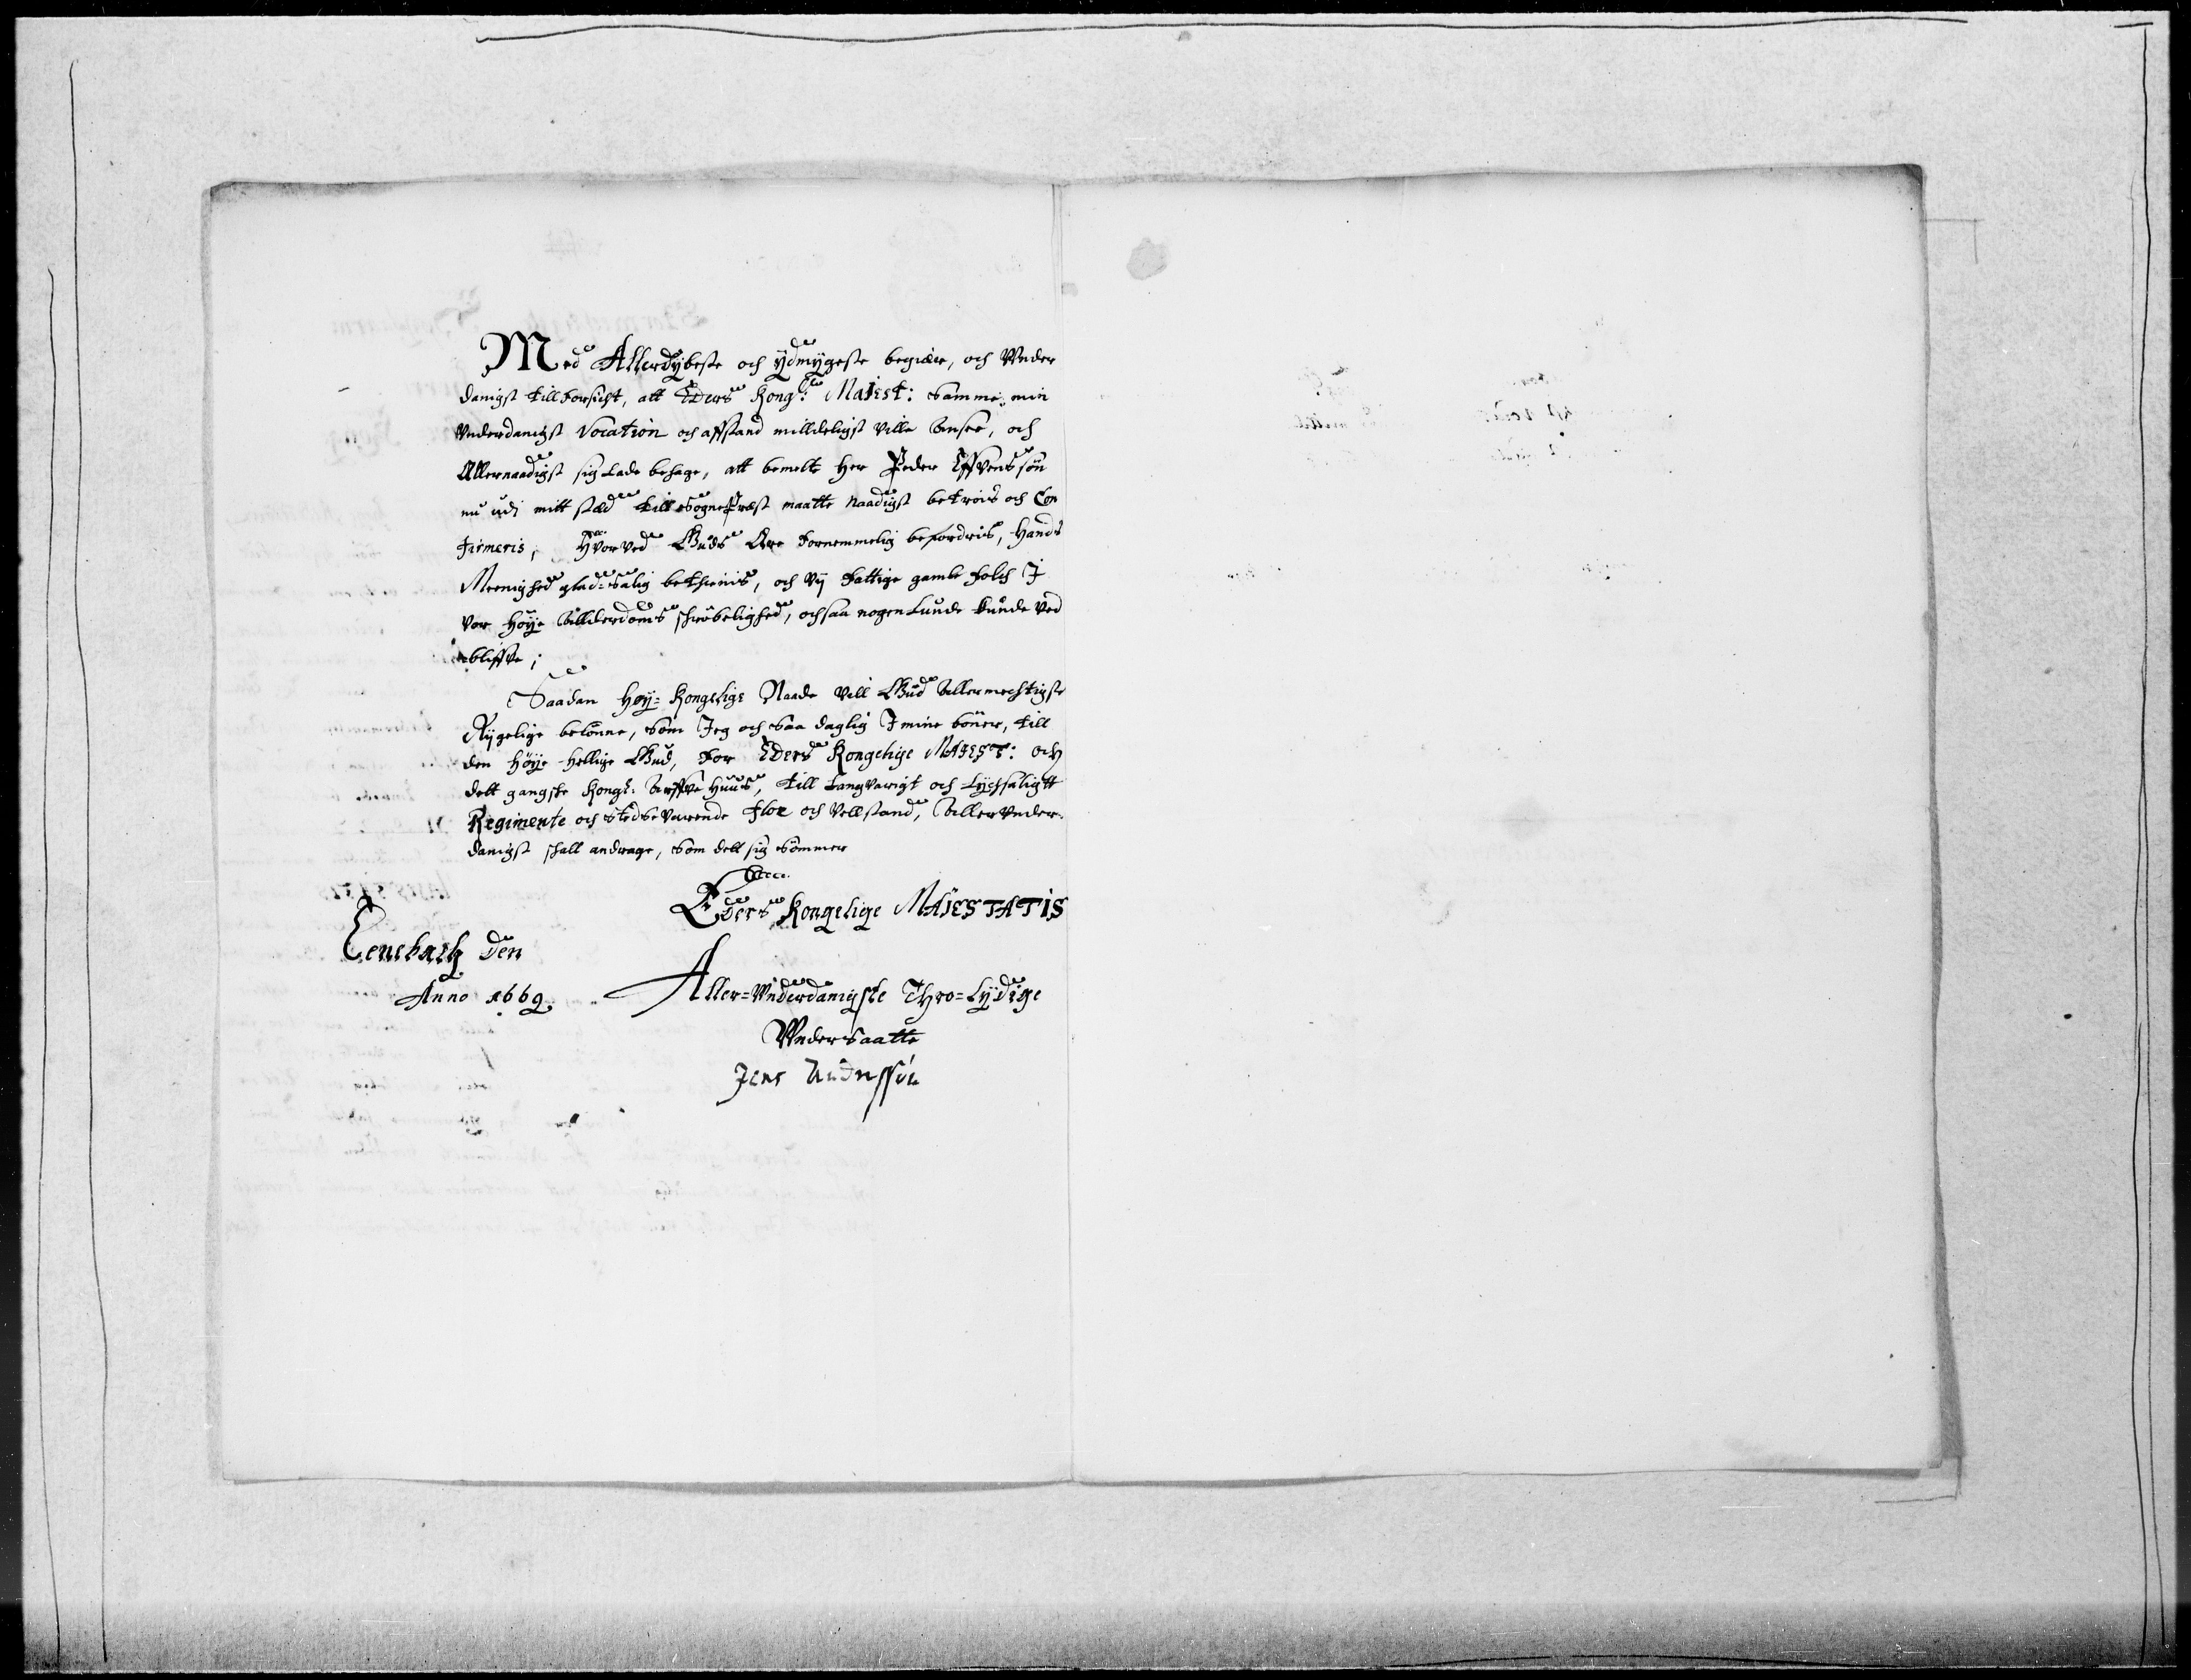 Med Allerdybeste och ydmygeste begiære, och Vnder
danigst till forsicht, att Eders Kong: Maiest: samme min
Vnderdanigst Vocation och affstand milldeligst ville Ansee, och
Allernaadigst sig lade behage, att bemelte Her Peder Effvenssøn
nu udi mitt stæd till SognePræst maatte naadigst betrois och Con
firmeris, Hvorved Guds Ære fornemmelig befordris, Hands
Meenighed glad-salig bethienis, och Vij fattige gamle folch I
vor Høye Allderdoms schrøbelighed, ochsaa nogenlunde kunde ved
bliffve;
Saadan Høy-Kongelige Naade vill Gud Allermechtigste
Rygelige belønne, som Jeg och saa daglig I mine bøner, till
den Høye Hellige Gud, for Eders Kongelige MAIEST: och
dett gangske Kongl: Arffve Huus, till Langvarigt och Lychsaligtt
Regimente och stedsevarende flor och Vellstand, Allervnder-
danigst schall andrage, som dett sig sømmer
Eders Kongelige MAIESTATIS
Lenchach den
Anno 1669.
Aller-Vnderdanigste Thro-Lydige
Vndersaatte
Jens